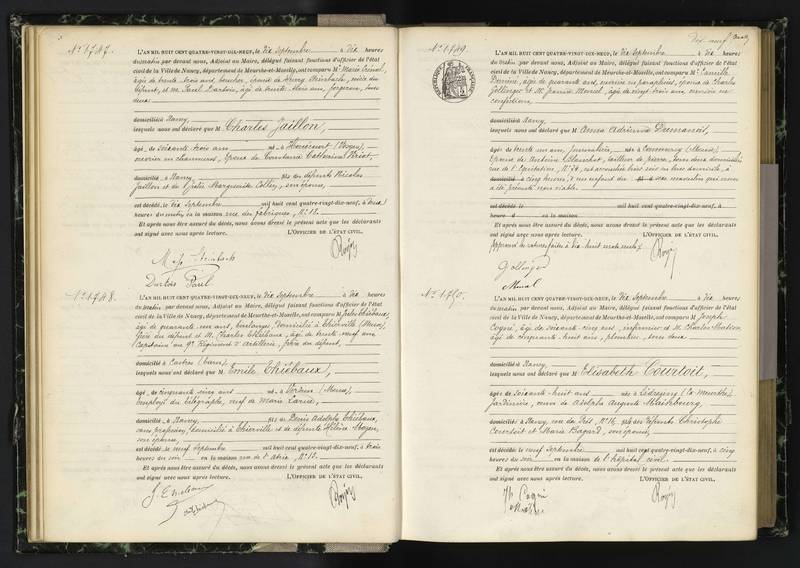 N° 1747.
L'AN MIL HUIT CENT QUATRE-VINGT-DIX-NEUF, le dix Septembre à dix heures
du matin par devant nous, Adjoint au Maire, délégué faisant fonctions d'officier de l'état
civil de la Ville de Nancy, département de Meurthe-et-Moselle, ont comparu M
âgée de trente trois ans, épouse de Henry Steinbach, nièce du
défunt, et M. Paul âgé de trente trois ans, forgeron, tous
deux
domicilié à Nancy,
lesquels nous ont déclaré que M Charles Jaillon,
âgé de soixante trois ans né à (Vosges),
ouvrier en chaussures, époux de Constance Catherine
domicilié à Nancy, fils des défunts Nicolas
Jaillon et de Marguerite son épouse,
est décédé le dix Septembre mil huit cent quatre-vingt-dix-neuf, à
heures du matin en la maison rue des fabriques, N° 12.
Et après nous être assuré du décès, nous avons dressé le présent acte que les déclarants
ont signé avec nous après lecture. L'OFFICIER DE L'ÉTAT CIVIL,
Steinbach
Paul
N° 1748.
L'AN MIL HUIT CENT QUATRE-VINGT-DIX-NEUF, le dix Septembre à dix heures
du matin par devant nous, Adjoint au Maire, délégué faisant fonctions d'officier de l'état
civil de la Ville de Nancy, département de Meurthe-et-Moselle, ont comparu M Jules Thiébaux,
âgé de quarante ans, boulanger, domicilié à Thierville (Meuse),
frère du défunt et M. Charles Thiébaux, âgé de trente neuf ans
Capitaine au 9e Régiment d'Artillerie, frère du défunt,
domicilié à Castres (Tarn),
lesquels nous ont déclaré que M Emile Thiébaux,
âgé de cinquante ans né à Verdun (Meuse),
employé du télégraphe, veuf de Marie
domicilié à Nancy, fils de Denis Adolphe Thiébaux,
sans profession, domicilié à Thierville et de défunte Hélène
son épouse,
est décédé le neuf Septembre mil huit cent quatre-vingt-dix-neuf, à trois
heures du soir en la maison rue de l' N° 12.
Et après nous être assuré du décès, nous avons dressé le présent acte que les déclarants
ont signé avec nous après lecture. L'OFFICIER DE L'ÉTAT CIVIL,
N° 1749.
L'AN MIL HUIT CENT QUATRE-VINGT-DIX-NEUF, le dix Septembre à dix heures
du matin par devant nous, Adjoint au Maire, délégué faisant fonctions d'officier de l'état
civil de la Ville de Nancy, département de Meurthe-et-Moselle, ont comparu M Camille
âgée de quarante ans, ouvrière en parapluies, épouse de Charles
Gollinger et M. âgée de vingt trois ans ouvrière en
confections,
domicilié à Nancy,
lesquels nous ont déclaré que M Anna Adrienne Dumanois,
âgée de trente un ans, journalière, née à Commercy (Meuse),
épouse de Antoine Blanchet, tailleur de pierre, tous deux domiciliés
rue de l'Equitation, N° 78, est accouchée hier soir en leur domicile, à
cinq heures, d'un enfant du sexe masculin qui nous
a été présenté non viable.
est décédé le mil huit cent quatre-vingt-dix-neuf, à
heures d en la maison
Et après nous être assuré du décès, nous avons dressé le présent acte que les déclarants
ont signé avec nous après lecture. L'OFFICIER DE L'ÉTAT CIVIL,
Gollinger
N° 1750.
L'AN MIL HUIT CENT QUATRE-VINGT-DIX-NEUF, le dix Septembre à dix heures
du matin par devant nous, Adjoint au Maire, délégué faisant fonctions d'officier de l'état
civil de la Ville de Nancy, département de Meurthe-et-Moselle, ont comparu M Joseph
âgé de soixante cinq ans, infirmier et M. Charles
âgé de cinquante huit ans, plombier, tous deux
domicilié à Nancy,
lesquels nous ont déclaré que M Elisabeth Courtoit,
âgée de soixante huit ans née à (la Meurthe),
Jardinière, veuve de Adolphe Auguste
domiciliée à Nancy, rue des N° 16, fille des défunts Christophe
Courtoit et Marie Bagard, son épouse,
est décédée le neuf Septembre mil huit cent quatre-vingt-dix-neuf, à cinq
heures du soir en la maison de l'hôpital civil.
Et après nous être assuré du décès, nous avons dressé le présent acte que les déclarants
ont signé avec nous après lecture. L'OFFICIER DE L'ÉTAT CIVIL,